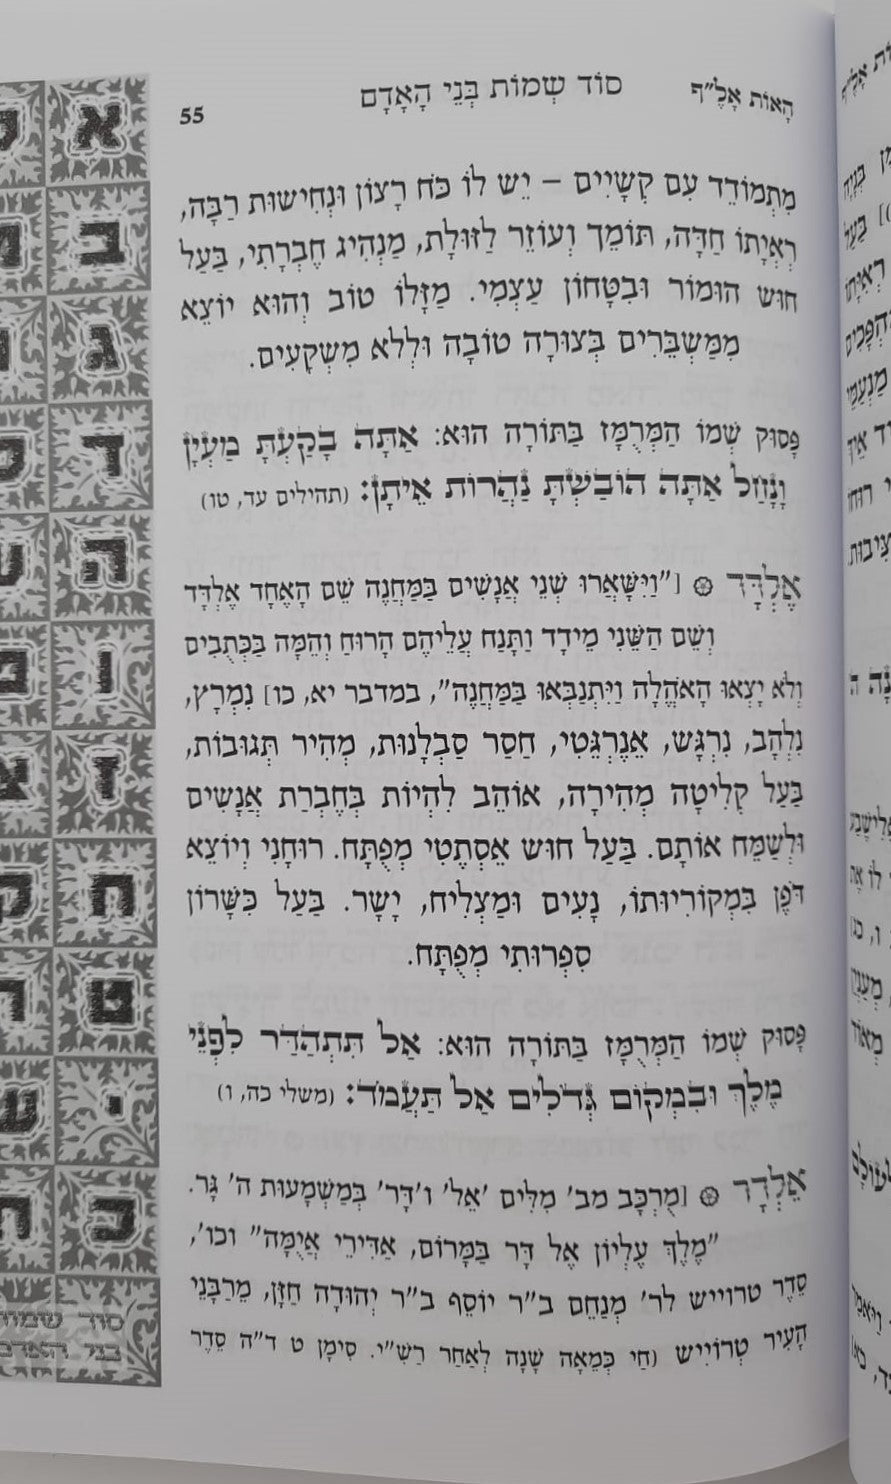 הָאוֹת אָלֶ״ף סוֹד שְׁמוֹת בְּנֵי הָאָדָם 55
מִתְמוֹדֵד עִם קְשָׁיִים – יֵשׁ לוֹ כֹּחַ רָצוֹן וּנְחִישׁוּת רַבָּה,
רְאִיָּתוֹ חַדָּה, תּוֹמֵךְ וְעוֹזֵר לַזּוּלָת, מַנְהִיג חֶבְרָתִי, בַּעַל
חוּשׁ הוּמוֹר וּבִטָּחוֹן עַצְמִי. מַזָּלוֹ טוֹב וְהוּא יוֹצֵא
מִמַּשְׁבֵּרִים בְּצוּרָה טוֹבָה וּלְלֹא מִשְׁקָעִים.
פָּסוּק שְׁמוֹ הַמְּרֻמָּז בַּתּוֹרָה הוּא: אַתָּה בָקַעְתָּ מַעְיָן
וָנָחַל אַתָּה הוֹבַשְׁתָּ נַהֲרוֹת אֵיתָן: (תהילים עד, טו)
אֶלְדָּד ۞ [״וַיִּשָּׁאֲרוּ שְׁנֵי אֲנָשִׁים בַּמַּחֲנֶה שֵׁם הָאֶחָד אֶלְדָּד
וְשֵׁם הַשֵּׁנִי מֵידָד וַתָּנַח עֲלֵיהֶם הָרוּחַ וְהֵמָּה בַּכְּתֻבִים
וְלֹא יָצְאוּ הָאֹהֱלָה וַיִּתְנַבְּאוּ בַּמַּחֲנֶה״, במדבר יא, כו] נִמְרָץ,
נִלְהָב, נִרְגָּשׁ, אֵנֶרְגֵּטִי, חַסַר סַבְלָנוּת, מְהִיר תְּגוּבוֹת,
בַּעַל קְלִיטָה מְהִירָה, אוֹהֵב לִהְיוֹת בְּחֶבְרַת אֲנָשִׁים
וּלְשַׂמֵּחַ אוֹתָם. בַּעַל חוּשׁ אֵסְתֵטִי מְפֻתָּח. רוּחָנִי וְיוֹצֵא
דֹּפֶן בִּמְקוֹרִיּוּתוֹ, נָעִים וּמַצְלִיחַ, יָשָׁר. בַּעַל כִּשָּׁרוֹן
סִפְרוּתִי מְפֻתָּח.
פָּסוּק שְׁמוֹ הַמְּרֻמָּז בַּתּוֹרָה הוּא: אַל תִּתְהַדַּר לִפְנֵי
מֶלֶךְ וּבִמְקוֹם גְּדֹלִים אַל תַּעֲמֹד: (משלי כה, ו)
אֶלְדָּר ۞ [מֻרְכָּב מב׳ מִלִּים ׳אֵל׳ ו׳דָּר׳ בְּמַשְׁמָעוּת ה׳ גָּר.
״מֶלֶךְ עֶלְיוֹן אֶל דָּר בַּמָּרוֹם, אַדִּירֵי אֲיֻמָּה״ וכו׳,
סֵדֶר טרוייש לר׳ מְנַחֵם ב״ר יוֹסֵף ב״ר יְהוּדָה חַזָּן, מֵרַבָּנֵי
הָעִיר טְרוֹיִישׁ (חַי כְּמֵאָה שָׁנָה לְאַחַר רַשִׁ״י. סִימָן ט ד״ה סֵדֶר
א
ב
ג
ד
ה
ו
ז
ח
ט
י
כ
סוד שמות
בני האדם